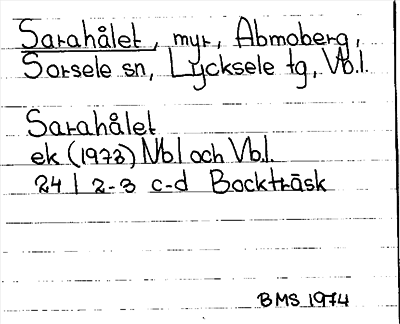 Sarahålet, myr, Abmoberg,
Sorsele sn, Lycksele tg, Vb.l.
Sarahålet
ek (1973) Nbl och Vb.l.
24 I 2-3 c-d Bockträsk
BMS 1974